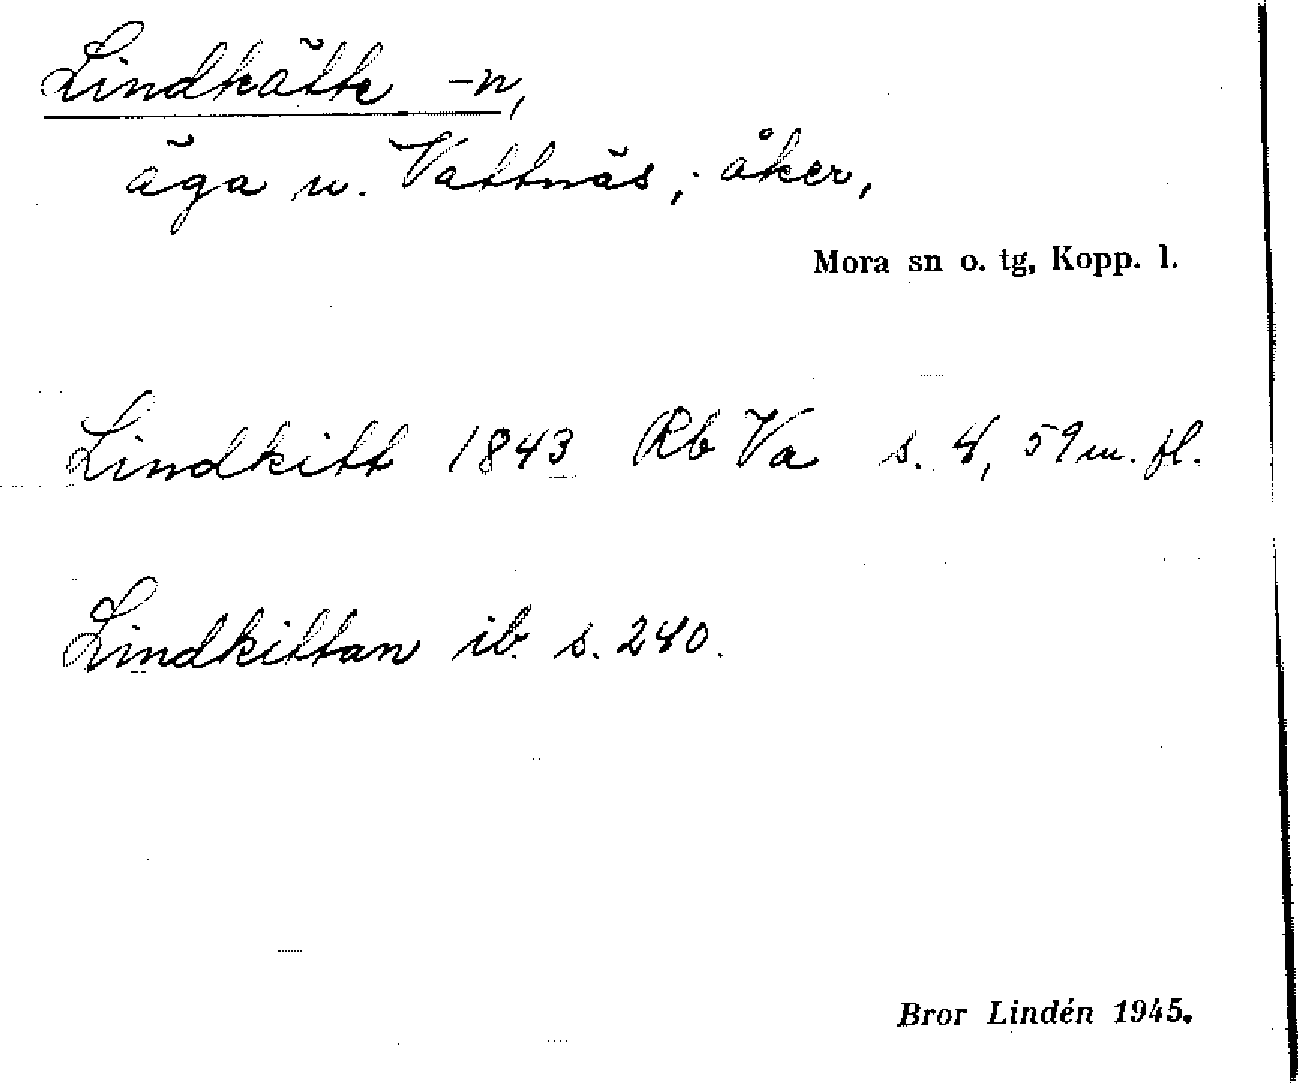 Lindkätte -n,
äga u. Vattnäs; åker,
Mora sn o. tg, Kopp. l.
Lindkitt 1843 Rb Va s. 4, 59 m. fl.
Lindkittan ib. s. 240.
Bror Lindén 1945.